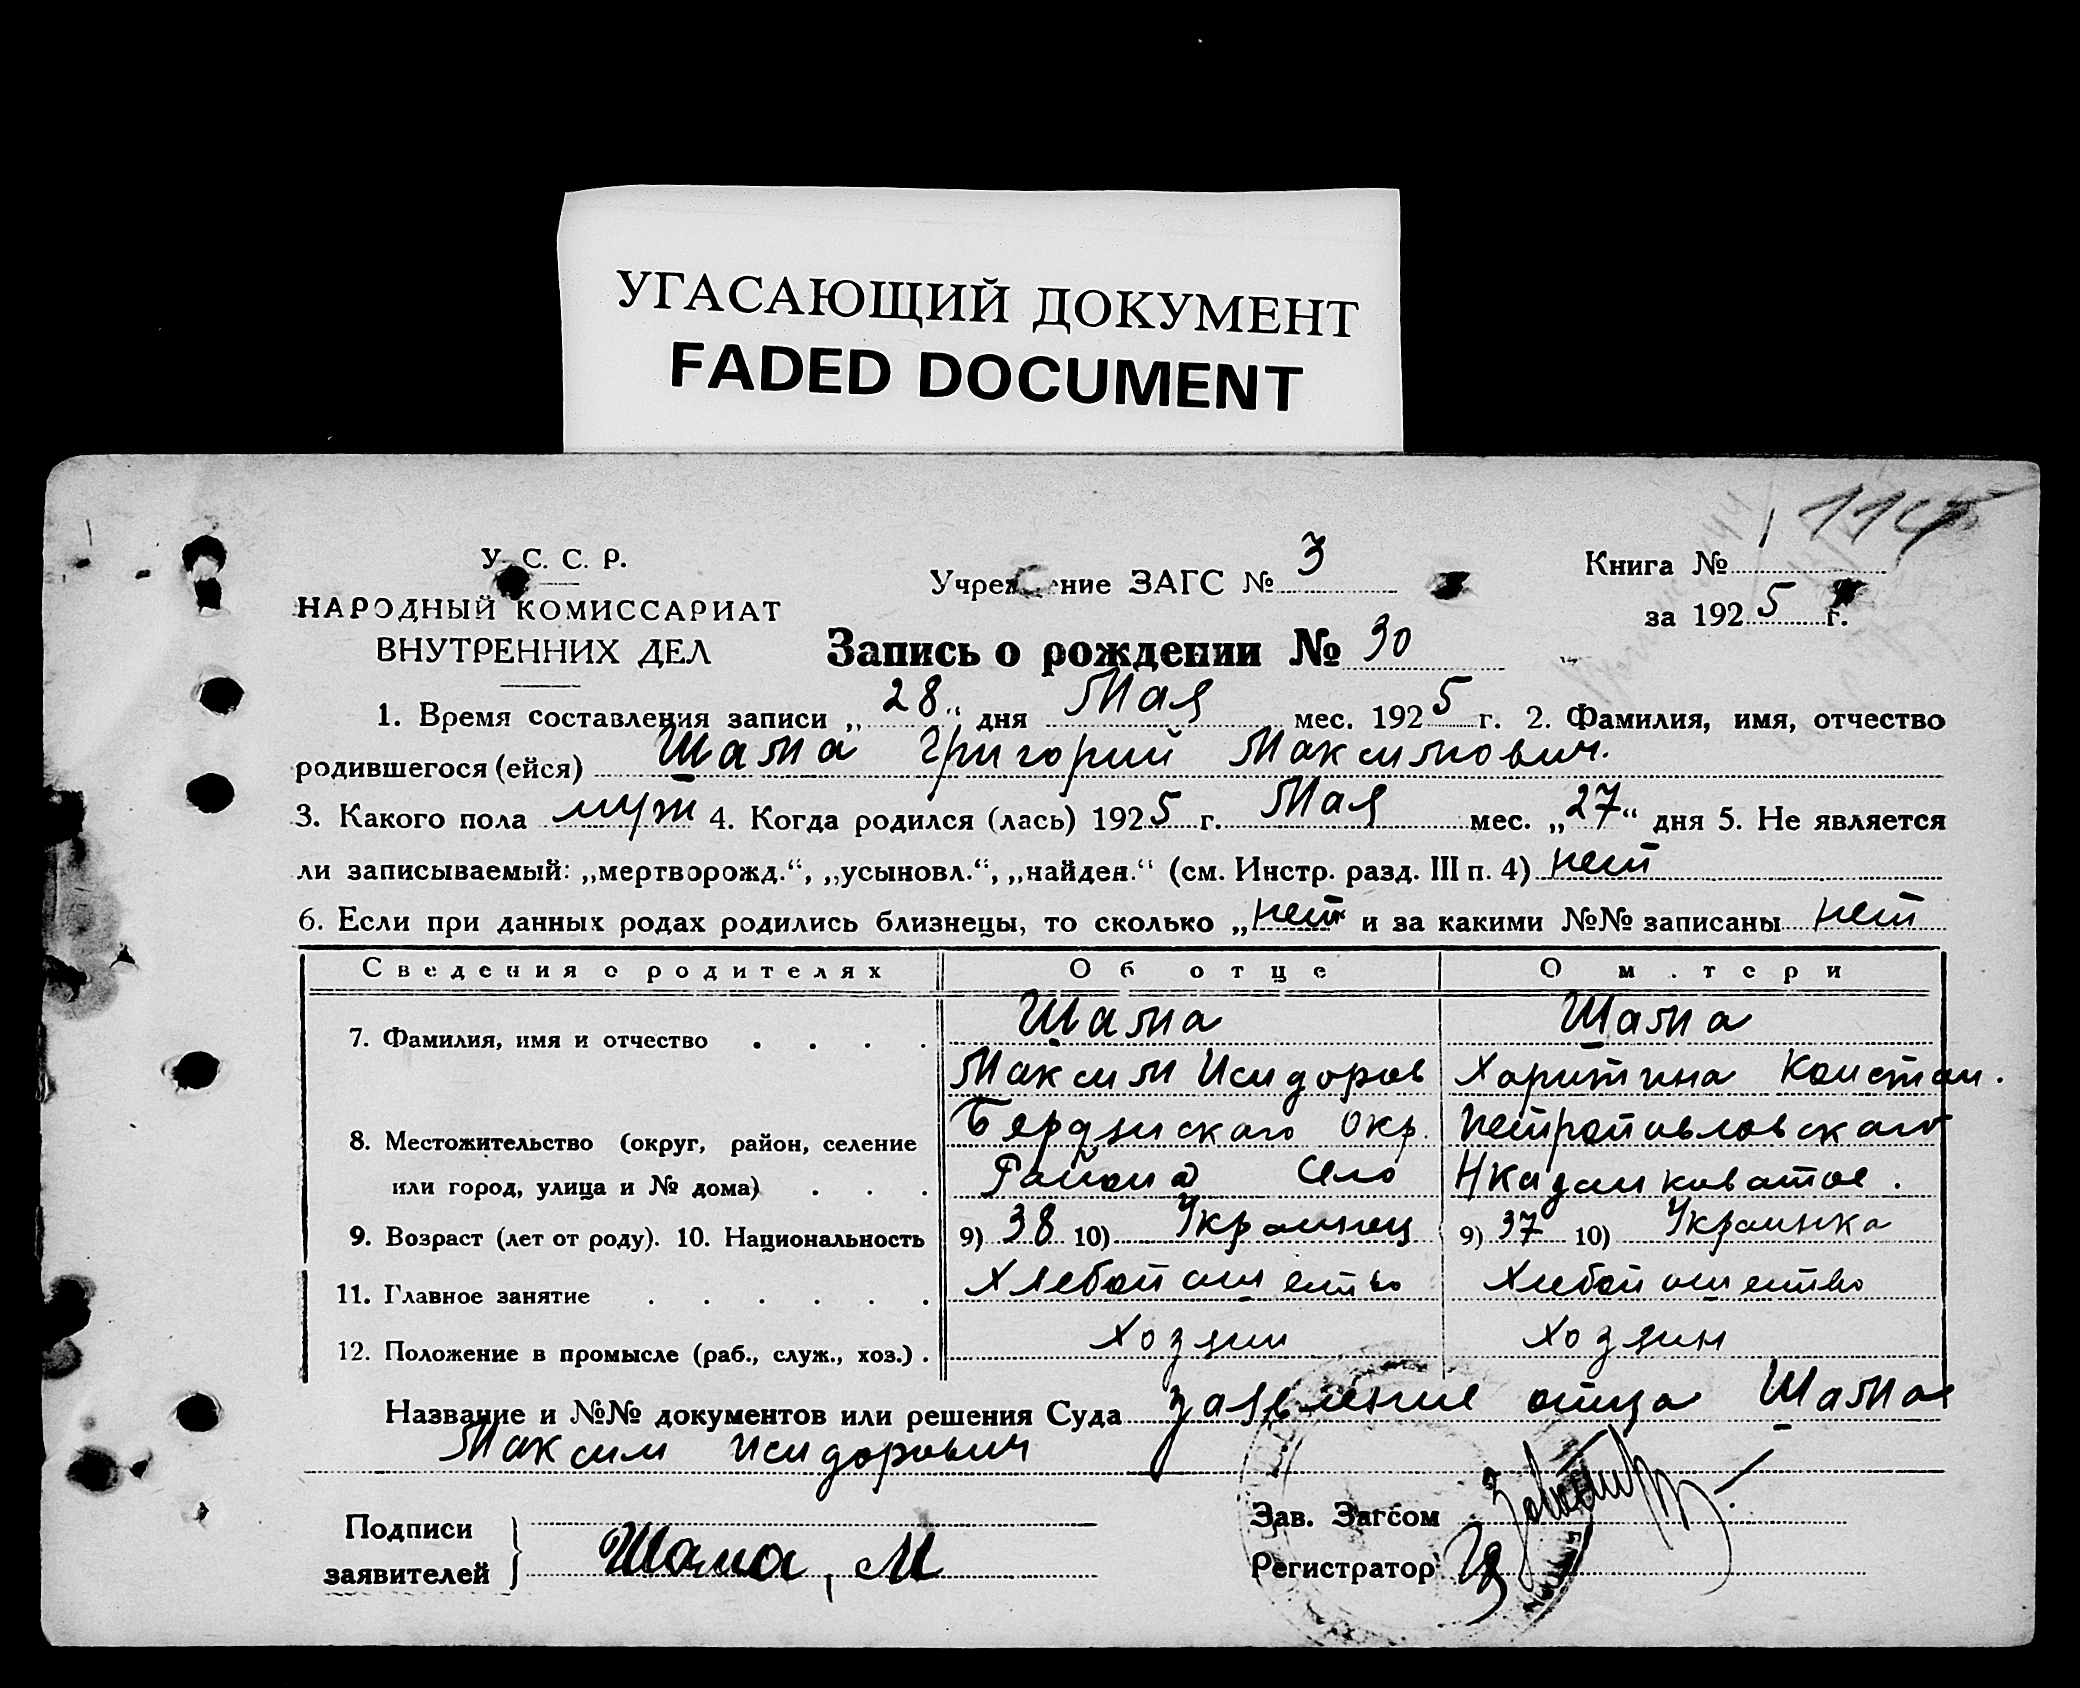 УГАСАЮЩИЙ ДОКУМЕНТ
FADED DOCUMENT
114
У. С. С. Р.
НАРОДНЫЙ КОМИССАРИАТ
ВНУТРЕННИХ ДЕЛ
Учреж ение ЗАГС № 3
Книга №
за 1925 г.
Запись о рождении № 30
1. Время составления записи „28“ дня Мая мес. 1925 г. 2. Фамилия, имя, отчество
родившегося (ейся) Шама Григорий Максимович.
3. Какого пола муж 4. Когда родился (лась) 1925 г. Мая мес. „27“ дня 5. Не является
ли записываемый: „мертворожд.“, „усыновл.“, „найден.“ (см. Инстр. разд. III п. 4) нет
6. Если при данных родах родились близнецы, то сколько „нет“ и за какими №№ записаны нет
Сведения о родителях Об отце О м.тери
7. Фамилия, имя и отчество Шама Шама
Максим Исидоров Харитина Констан.
8. Местожительство (округ, район, селение Бердянского Окр. Петропавловского
или город, улица и № дома) Района Село
9. Возраст (лет от роду). 10. Национальность 9) 38 10) Украинец 9) 37 10) Украинка
11. Главное занятие Хлебопашество Хлебопашество
12. Положение в промысле (раб., служ., хоз.) Хозяин Хозяин
Название и №№ документов или решения Суда Заявление отца Шама
Максим Исидорович
Подписи
заявителей
Шама, М
Зав. Загсом
Регистратор